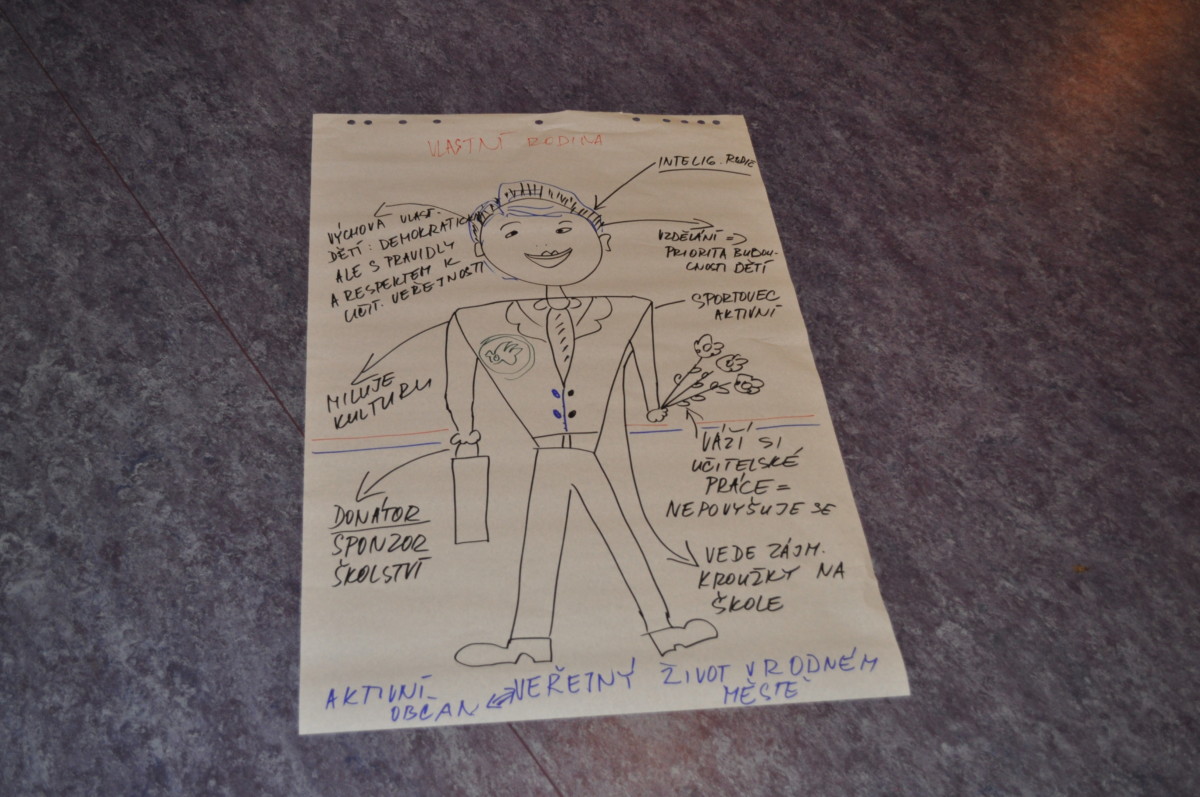 VLASTNÍ RODINA
INTELIG. RODIČ
VÝCHOVA VLAST.
DĚTÍ: DEMOKRATICK
ALE S PRAVIDLY
A RESPEKTEM K
UČIT. VEŘEJNOSTI
VZDĚLÁNÍ =>
PRIORITA BUDOU-
CNOSTI DĚTÍ
SPORTOVEC
AKTIVNÍ
MILUJE
KULTURU
VÁŽÍ SI
UČITELSKÉ
PRÁCE =
NEPOVYŠUJE SE
DONÁTOR
SPONZOR
ŠKOLSTVÍ
VEDE ZÁJM.
KROUŽKY NA
ŠKOLE
AKTIVNÍ
OBČAN
VEŘEJNÝ ŽIVOT V RODNÉM
MĚSTĚ